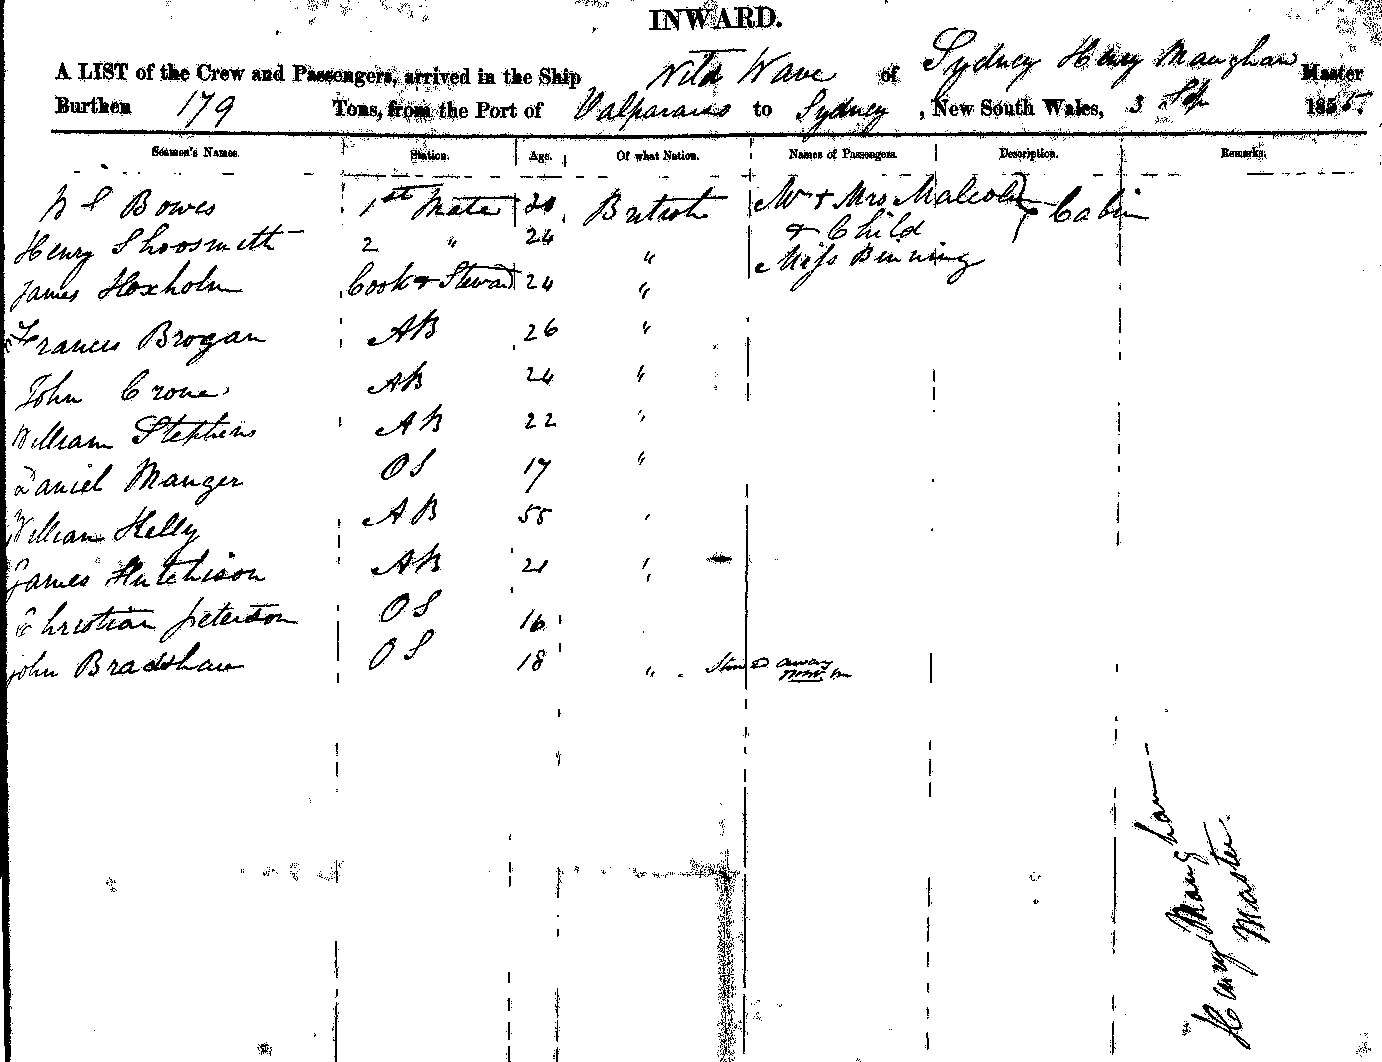 INWARD.
A LIST of the Crew and Passengers, arrived in the Ship Wild Wave of Sydney Henry Maughan Master
Burthen 179 Tons, from the Port of Valparaiso to Sydney, New South Wales, 3 Sep 1855.
Seamen's Names. Station. Age. Of what Nation. Names of Passengers. Description. Remarks.
Bowes 1st Mate British Mr & Mrs Malcolm Cabin
& Child
Henry Shoosmith 2 " 24 "
Miss Binning
James Hoxholm Cook & Steward 24 "
Francis Brogan AB 26 "
John Crone AB 24 "
William Stephens AB 22 "
Daniel Manger OS 17 "
William Kelly AB 55 "
James Hutchison AB 21 "
Christian Peterson OS 16
John Bradshaw OS 18 " away
Henry Maughan
Master.